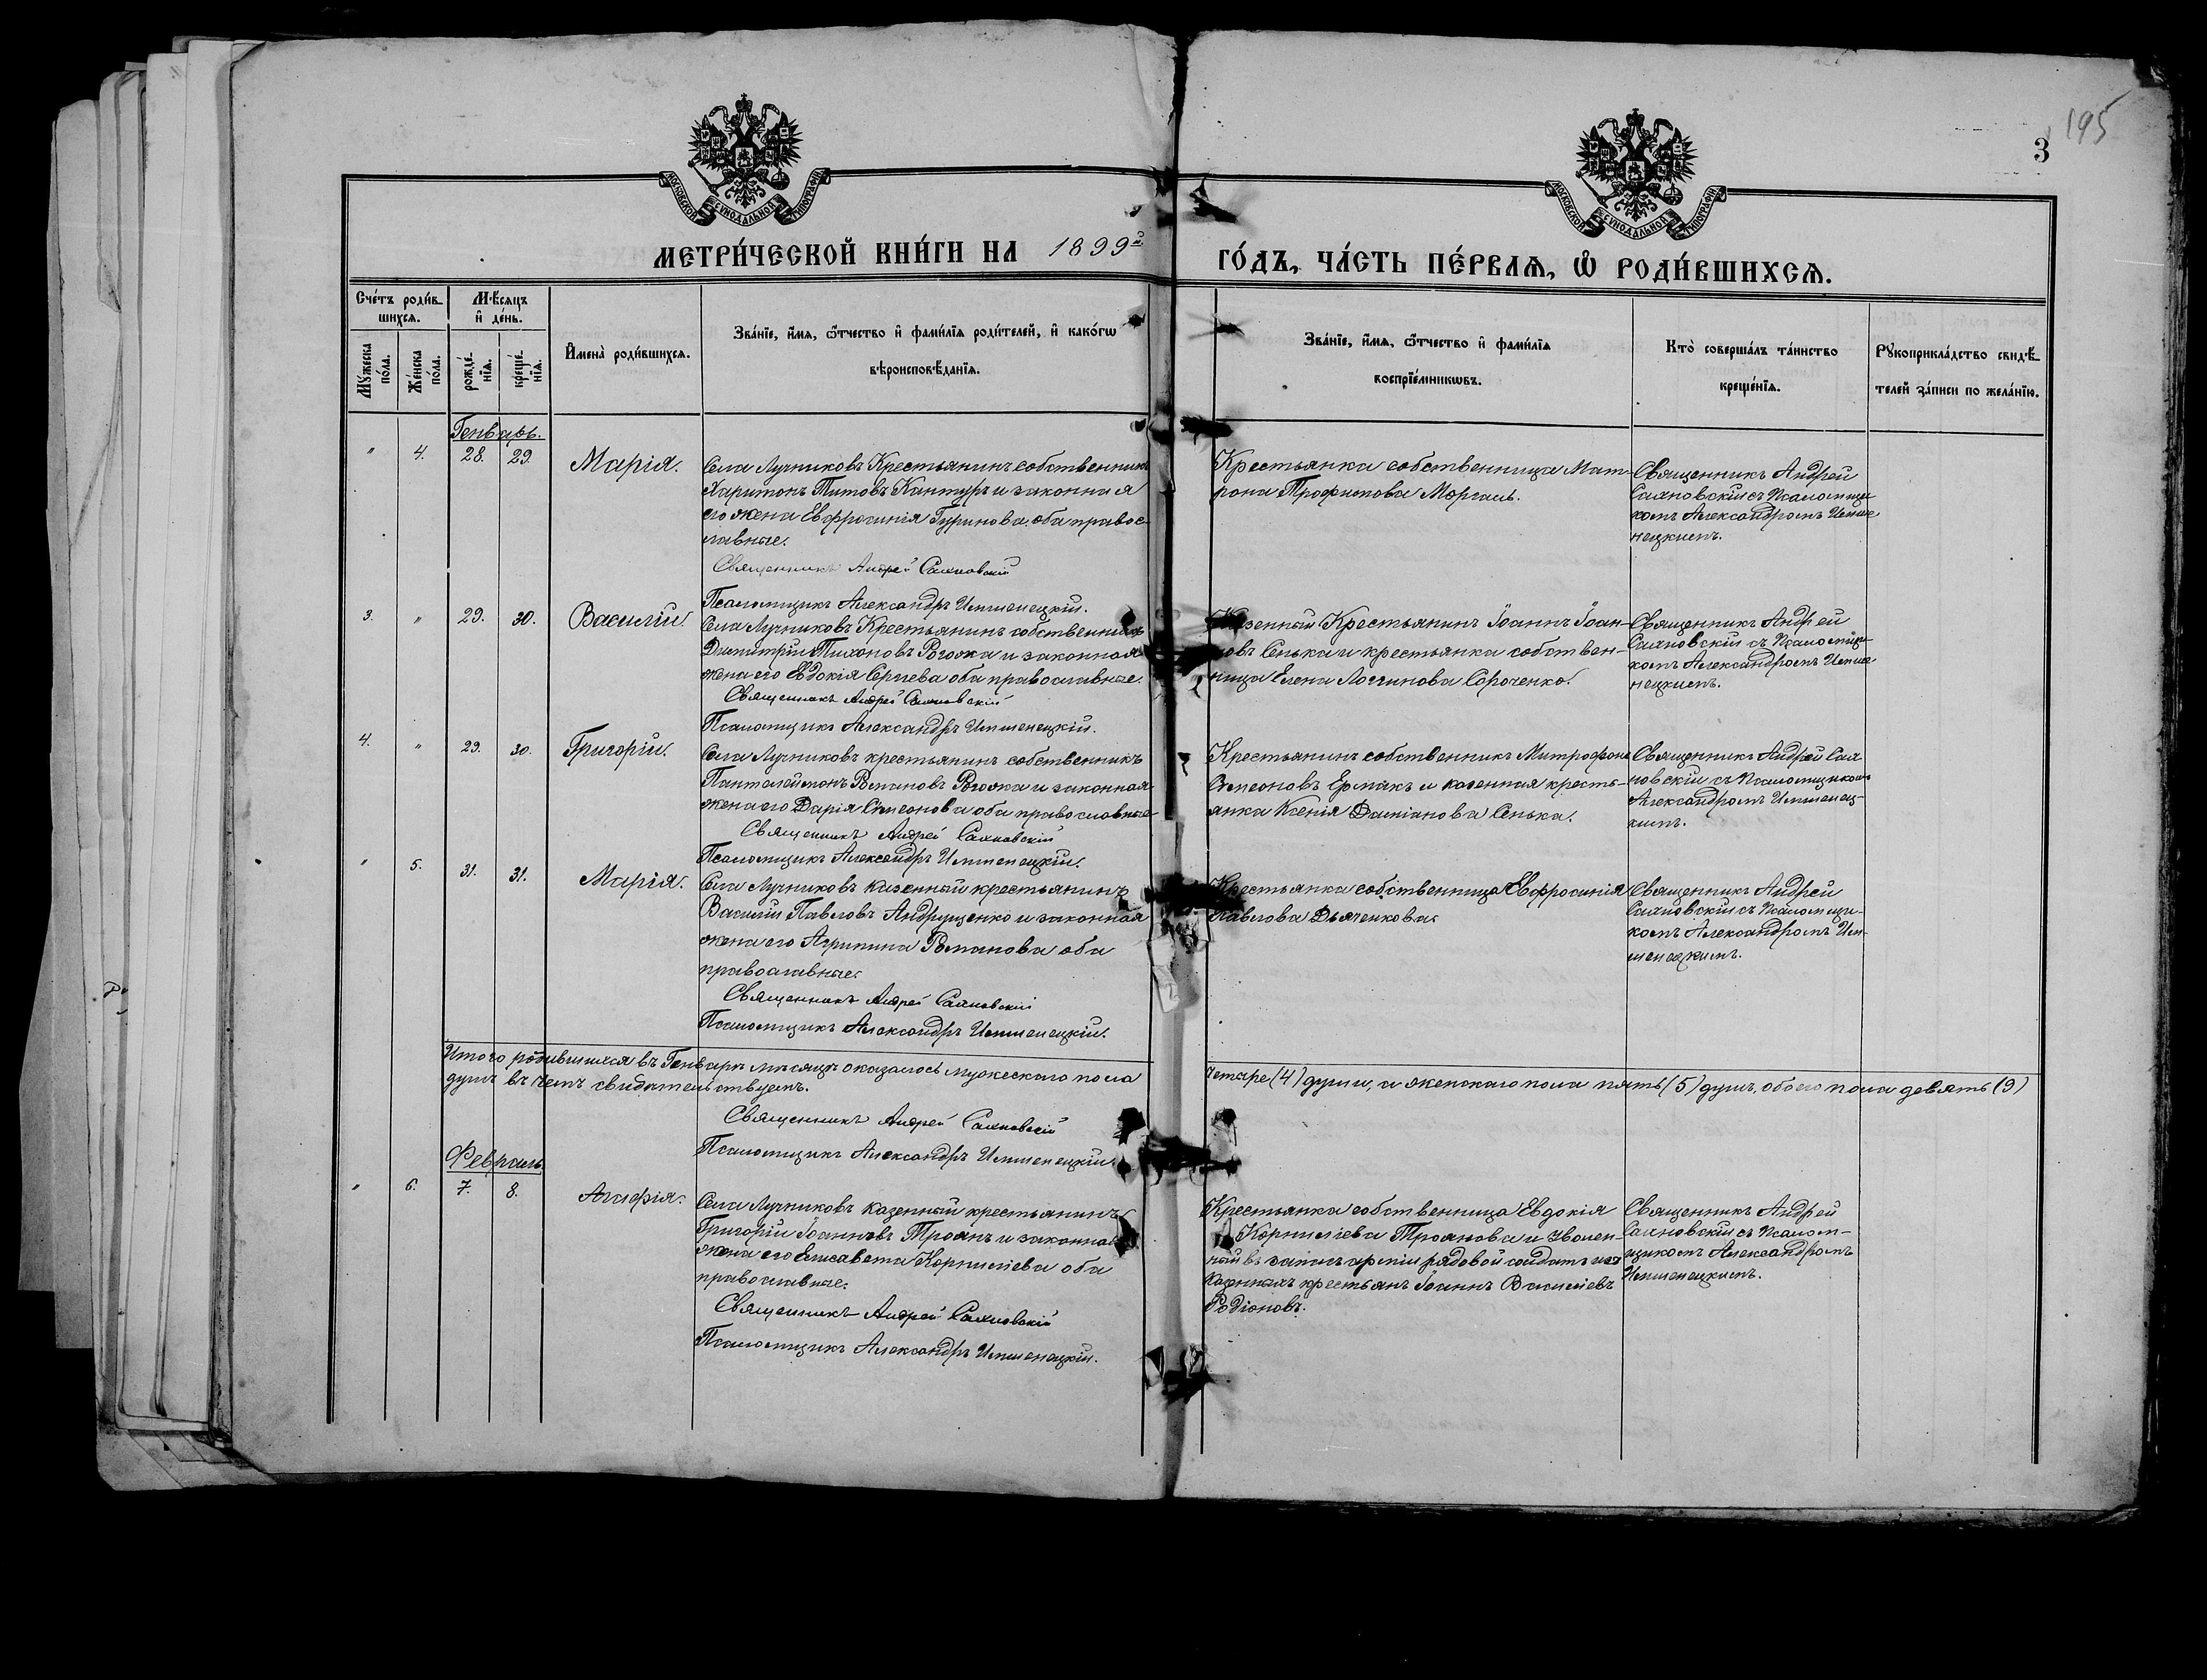 195
3
МОСКОВСКОЙ СУНОДАЛЬНОЙ ТИПОГРАФІИ
МОСКОВСКОЙ СУНОДАЛЬНОЙ ТИПОГРАФІИ
МЕТРИ́ЧЕСКОЙ КНИ́ГИ НА 1899й
ГО́ДЪ, ЧА́СТЬ ПЕ́РВАЯ, Ѡ҆ РОДИ́ВШИХСЯ.
Сче́тъ роди́в-
шихся.
Мѣ́сяцъ
и҆ де́нь.
Мꙋ́жеска
по́ла.
Же́нска
по́ла.
рожде́-
нїя.
креще́-
нїя.
И҆мена̀ роди́вшихся.
Зва́нїе, и҆́мя, ѻ҆́тчество и҆ фами́лїя роди́телей, и҆ како́гѡ
вѣроисповѣ́данїя.
Зва́нїе, и҆́мя, ѻ҆́тчество и҆ фами́лїя
воспрїе́мникѡвъ.
Кто̀ соверша́лъ та́инство
креще́нїя.
Рꙋкоприкла́дство свидѣ́-
телей за́писи по жела́нїю.
Генварь.
" 4. 28. 29. Марія.
Села Лучниковъ Крестьянинъ собственникъ
Харитонъ Титовъ Кантуръ и законная
его жена Евфросинія Гуринова оба правос-
лавные.
Священникъ Андрей Сахновскій
Псаломщикъ Александръ Ипшенецкій.
Крестьянка собственница Мат-
рона Трофимова Моргаль.
Священникъ Андрей
Сахновскій съ Псаломщи-
комъ Александромъ Ипше-
нецкимъ.
3. " 29. 30. Василій.
Села Лучниковъ Крестьянинъ собственникъ
Димитрій Тихоновъ Рогожа и законная
жена его Евдокія Сергіева оба православные.
Священникъ Андрей Сахновскій
Псаломщикъ Александръ Ипшенецкій.
Казенный Крестьянинъ Іоаннъ Іоан-
новъ Сенька и крестьянка собствен-
ница Елена Логгинова Сороченко.
Священникъ Андрей
Сахновскій съ Псаломщи-
комъ Александромъ Ипше-
нецкимъ.
4. " 29. 30. Григорій.
Села Лучниковъ крестьянинъ собственникъ
Пантелеймонъ Романовъ Рогожа и законная
жена его Дарія Симеонова оба православные
Священникъ Андрей Сахновскій
Псаломщикъ Александръ Ипшенецкій.
Крестьянинъ собственникъ Митрофанъ
Симеоновъ Ермакъ и казенная кресть-
янка Ксенія Даміанова Сенька.
Священникъ Андрей Сах-
новскій съ Псаломщикомъ
Александромъ Ипшенец-
кимъ.
" 5. 31. 31. Марія.
Села Лучниковъ казенный крестьянинъ
Василій Павловъ Андрущенко и законная
жена его Агрипина Романова оба
православные.
Священникъ Андрей Сахновскій
Псаломщикъ Александръ Ипшенецкій.
Крестьянка собственница Евфросинія
Павлова Дьяченкова.
Священникъ Андрей
Сахновскій съ Псаломщи-
комъ Александромъ Ип-
шенецкимъ.
Итого родившихся въ Генварѣ мѣсяцѣ оказалось мужескаго пола
четыре (4) души, а женскаго пола пять (5) душъ, обоего пола девять (9)
душъ въ чемъ свидѣтельствуемъ.
Священникъ Андрей Сахновскій
Псаломщикъ Александръ Ипшенецкій.
Февраль
" 6. 7. 8. Агафія.
Села Лучниковъ казенный крестьянинъ
Григорій Іоанновъ Троянъ и законная
жена его Елисавета Корниліева оба
православные.
Священникъ Андрей Сахновскій
Псаломщикъ Александръ Ипшенецкій.
Крестьянка собственница Евдокія
Корниліева Троянова и уволен-
ный въ запасъ арміи рядовой солдатъ изъ
казенныхъ крестьянъ Іоаннъ Василіевъ
Родіоновъ.
Священникъ Андрей
Сахновскій съ Псалом-
щикомъ Александромъ
Ипшенецкимъ.